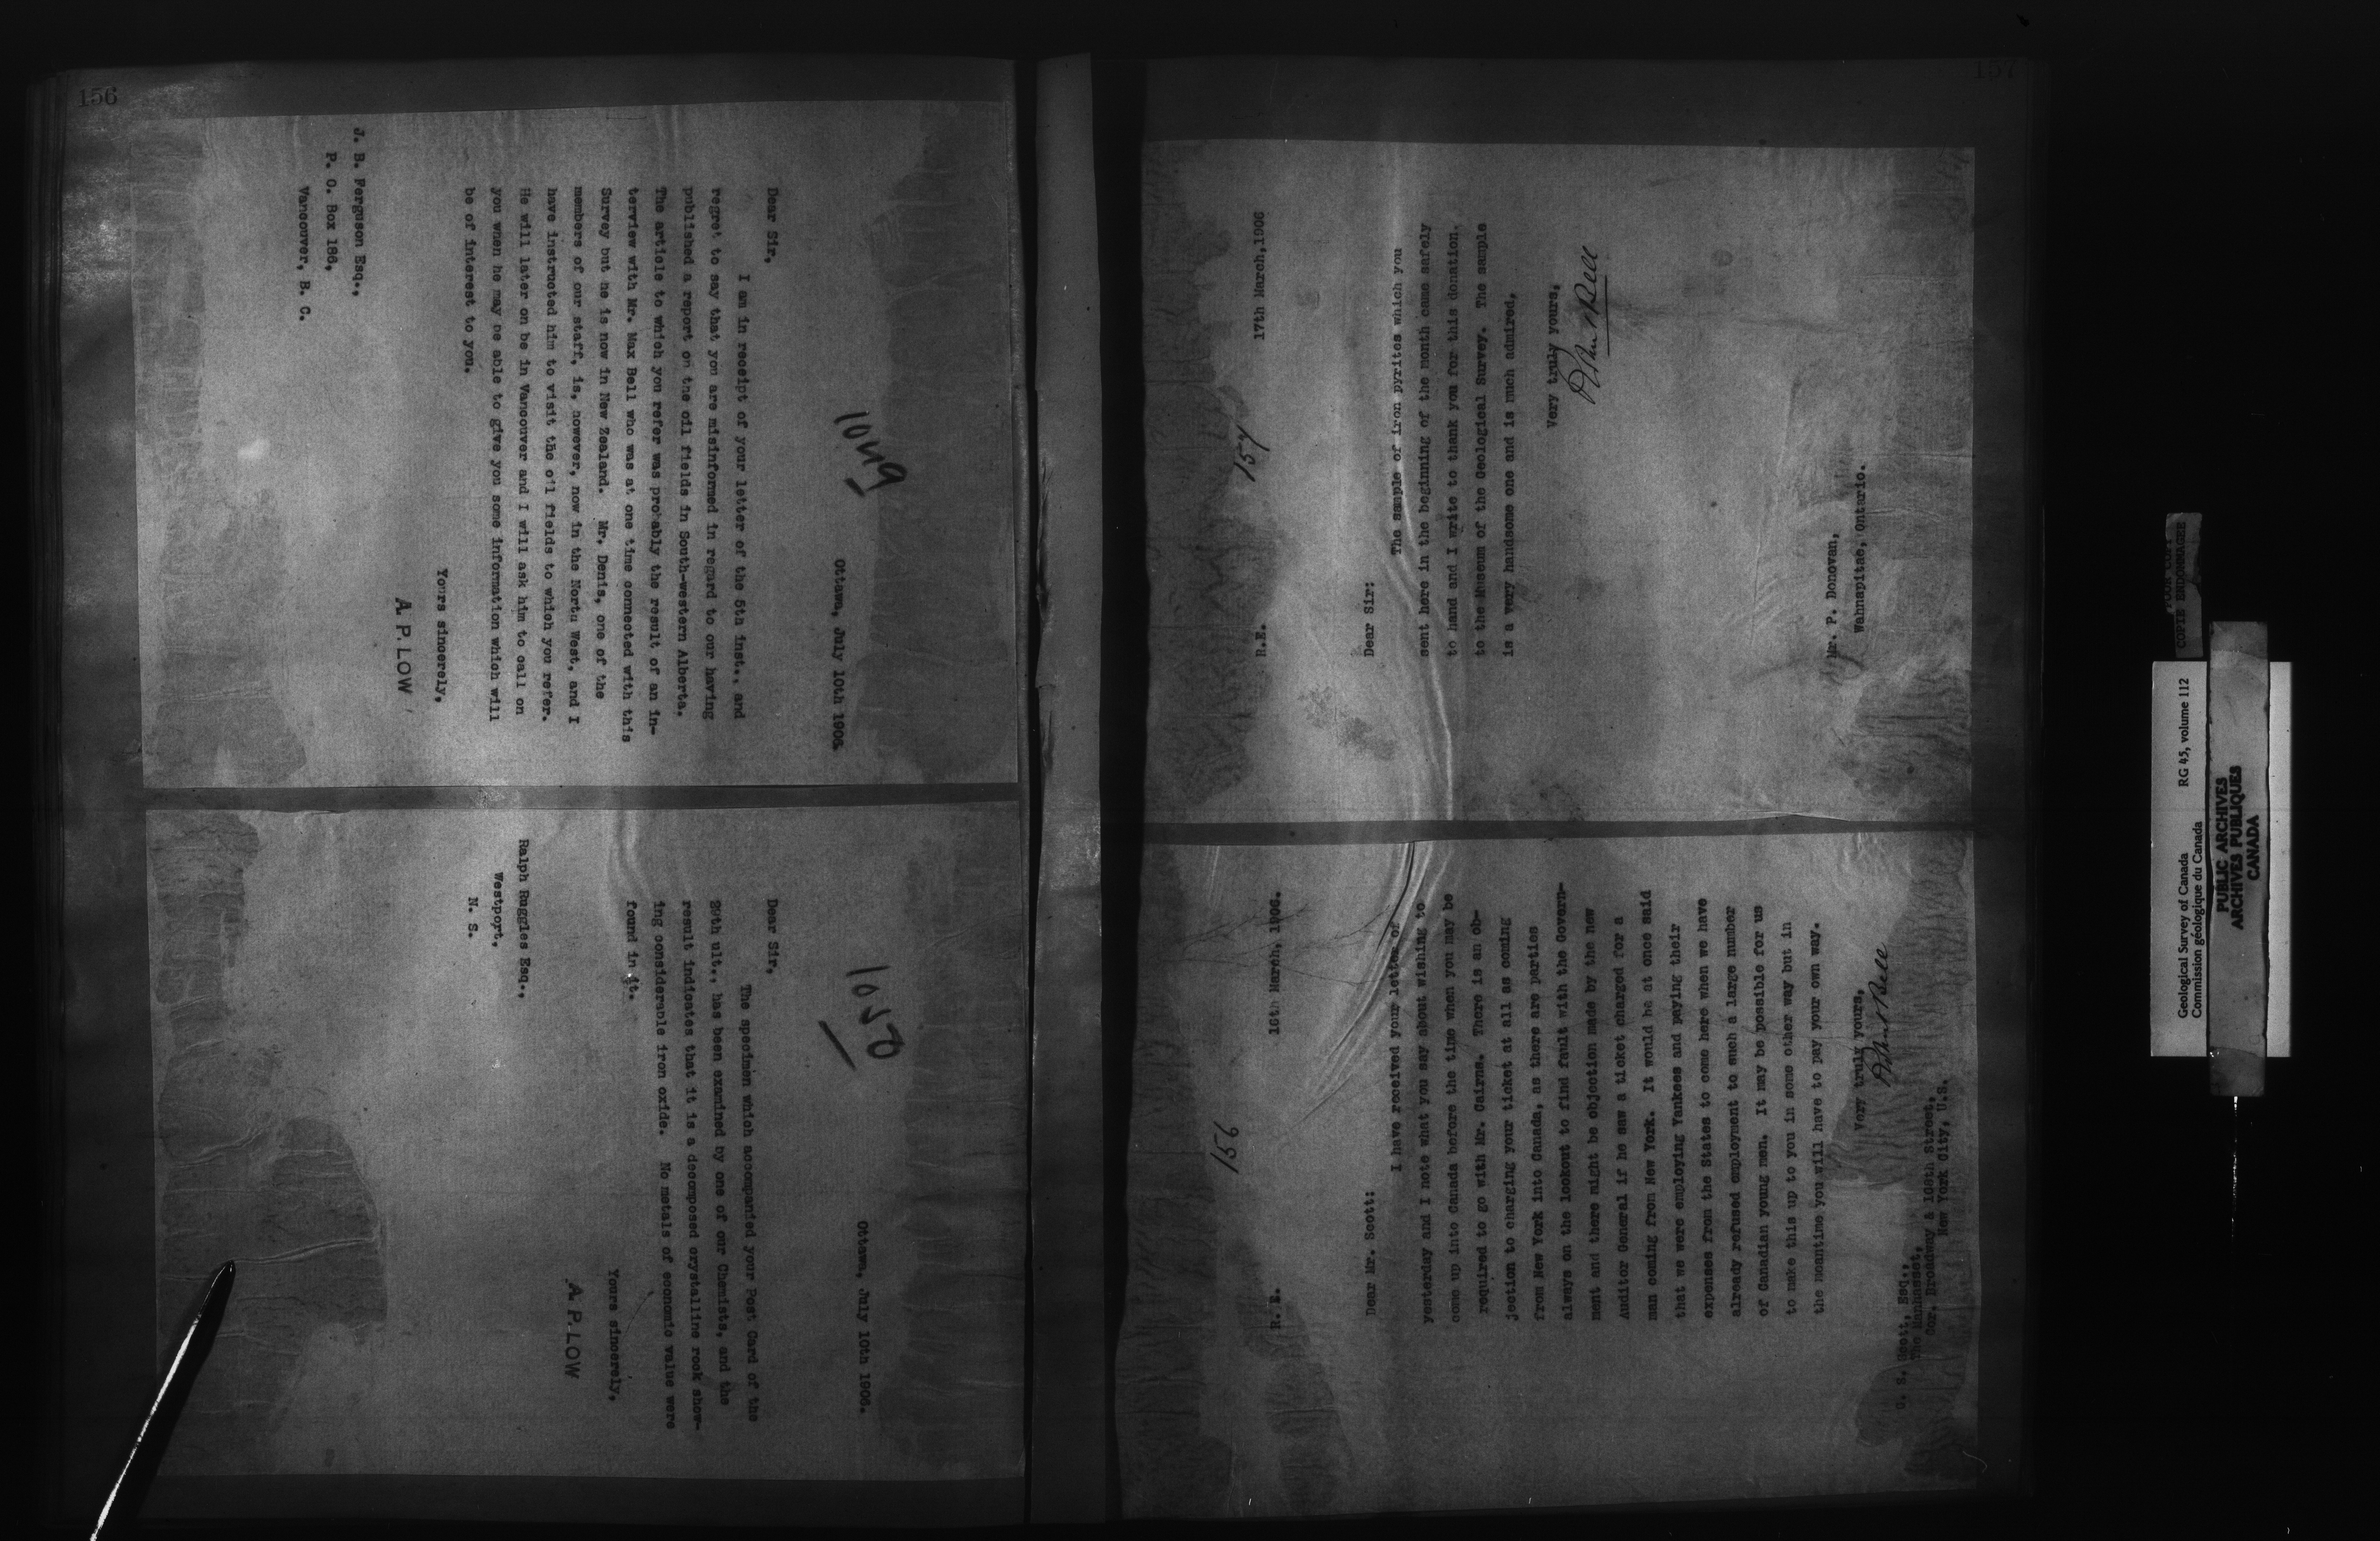 156
1049
Ottawa, July 10th 1906.
Dear Sir,
I am in receipt of your letter of the 5th inst., and
regret to say that you are misinformed in regard to our having
published a report on the oil fields in South-western Alberta.
The article to which you refer was probably the result of an in-
terview with Mr. Max Bell who was at one time connected with this
Survey but he is now in New Zealand. Mr. Denis, one of the
members of our staff, is, however, now in the North West, and I
have instructed him to visit the oil fields to which you refer.
He will later on be in Vancouver and I will ask him to call on
you when he may be able to give you some information which will
be of interest to you.
Yours sincerely,
A. P. LOW
J. B. Ferguson Esq.,
P. O. Box 186,
Vancouver, B. C.
1050
Ottawa, July 10th 1906.
Dear Sir,
The specimen which accompanied your Post Card of the
29th ult., has been examined by one of our Chemists, and the
result indicates that it is a decomposed crystalline rock show-
ing considerable iron oxide. No metals of economic value were
found in it.
Yours sincerely,
A. P. LOW
Ralph Ruggles Esq.,
Westport,
N. S.
157
157
R.E. 17th March,1906
Dear Sir:
The sample of iron pyrites which you
sent here in the beginning of the month came safely
to hand and I write to thank you for this donation,
to the Museum of the Geological Survey. The sample
is a very handsome one and is much admired,
Very truly yours,
Robert Bell
Mr. P. Donovan,
Wahnapitae, Ontario.
156
R. E. 16th March, 1906.
Dear Mr. Scott:
I have received your letter of
yesterday and I note what you say about wishing to
come up into Canada before the time when you may be
required to go with Mr. Cairns. There is an ob-
jection to charging your ticket at all as coming
from New York into Canada, as there are parties
always on the lookout to find fault with the Govern-
ment and there might be objection made by the new
Auditor General if he saw a ticket charged for a
man coming from New York. It would be at once said
that we were employing Yankees and paying their
expenses from the States to come here when we have
already refused employment to such a large number
of Canadian young men. It may be possible for us
to make this up to you in some other way but in
the meantime you will have to pay your own way.
Very truly yours,
Robert Bell
G. S. Scott, Esq.,
The Manhasset,
Cor. Broadway & 108th Street,
New York City, U.S.
COPIE ENDOMMAGEE
Geological Survey of Canada RG 45, volume 112
Commission géologique du Canada
PUBLIC ARCHIVES
ARCHIVES PUBLIQUES
CANADA